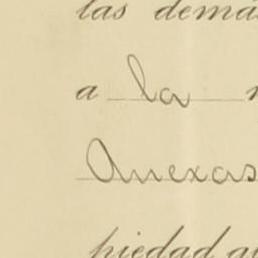 las demá
a la
Anexas
piedad a